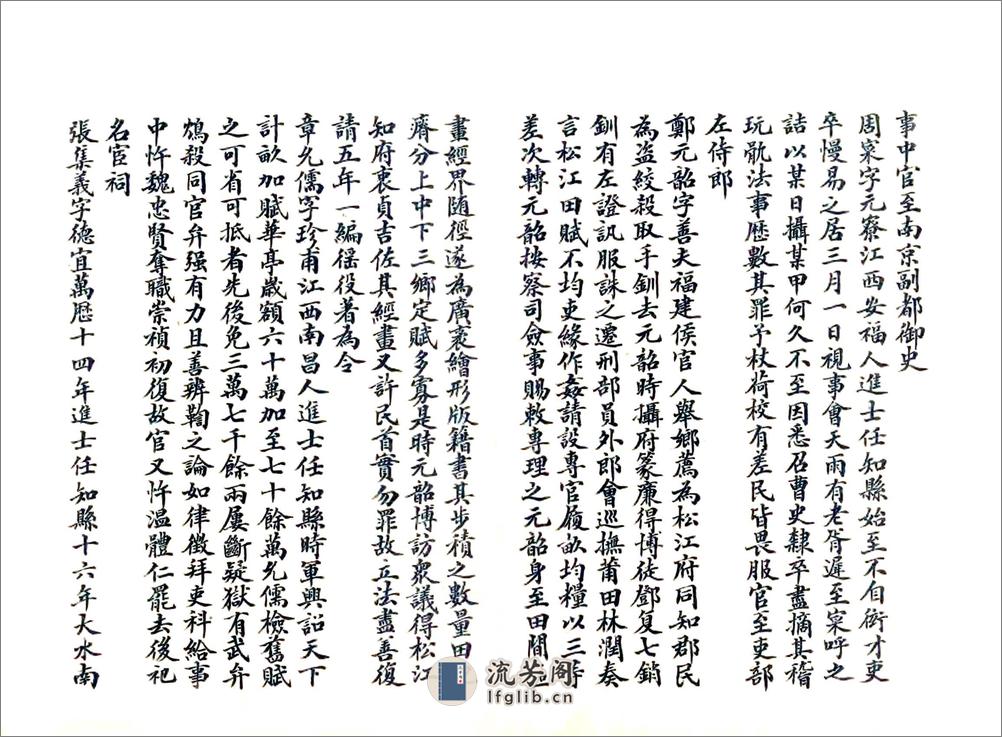 事中官至南京副都御史
周寀字元寮江西安福人進士任知縣始至不自衒才吏
卒慢易之居三月一日視事會天雨有老胥遲至寀呼之
詰以某日攝某甲何久不至因悉召曹史隸卒盡摘其稽
玩骫法事歷數其罪予杖荷校有差民皆畏服官至吏部
左侍郎
鄭元韶字善夫福建侯官人舉鄉薦為松江府同知郡民
為盜絞殺取手釧去元韶時攝府篆廉得博徒鄧复七銷
釧有左證訊服誅之遷刑部員外郎會巡撫莆田林潤奏
言松江田賦不均吏緣作姦請設專官履畝均糧以三等
差次轉元韶按察司僉事賜敕專理之元韶身至田間
畫經界随徑遂為廣袤繪形版籍書其步積之數量田
瘠分上中下三鄉定賦多寡是時元韶博訪衆議得松江
知府衷貞吉佐其經畫又許民首實勿罪故立法盡善復
請五年一編徭役著為令
章允儒字珍甫江西南昌人進士任知縣時軍興詔天下
計畝加賦華亭歲額六十萬加至七十餘萬允儒檢舊賦
之可省可抵者先後免三萬七千餘兩屢斷疑獄有武弁
鴆殺同官弁强有力且善辨鞫之論如律徵拜吏科給事
中忤魏忠賢奪職崇禎初復故官又忤溫體仁罷去後祀
名宦祠
張集義字德宜萬歷十四年進士任知縣十六年大水南
流芳阁
lfglib.cn